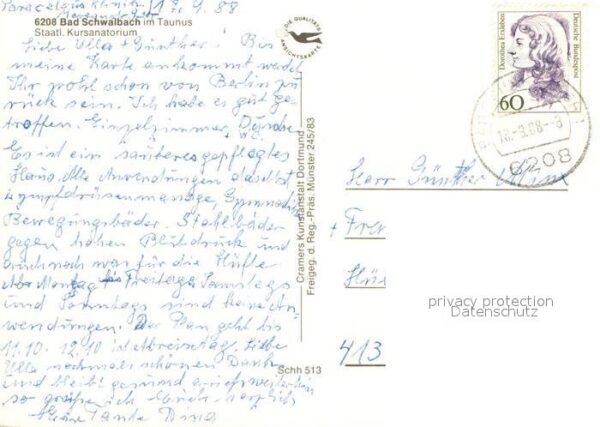 Paracelsus Klinik 17.9.88
6208 Bad Schwalbach im Taunus
Staatl. Kursanatorium
Liebe Ulla + Günther! Bis
meine Karte ankommt werdet
Ihr wohl schon von Berlin zu
rück sein. Ich habe es gut ge
troffen. Einzelzimmer, Dusche
W.C.
Es ist ein sauberes gepflegtes
Haus. Alle Anwendungen daselbst
Lymphdrüsenmassage, Gymnastik
Bewegungsbäder. Stahlbäder
gegen hohen Blutdruck und
auch noch was für die Hüfte
Montag bis Freitags, Samstags
und Sonntags sind keine An
wendungen. Der Plan geht bis
11.10. 12.10 ist Abreisetag. Liebe
Ulla nochmals schönen Dank
und bleibt gesund auch weiterhin
so grüße ich Euch herzlich
Tante Dina
DIE QUALITÄTS
ANSICHTSKARTE
Cramers Kunstanstalt Dortmund
Freigeg. d. Reg.-Präs. Münster 245/83
Schh 513
Dorothea Erxleben
Deutsche Bundespost
60
18.-9.88-8
6208
Herr Günther
+ Frau
413
privacy protection
Datenschutz